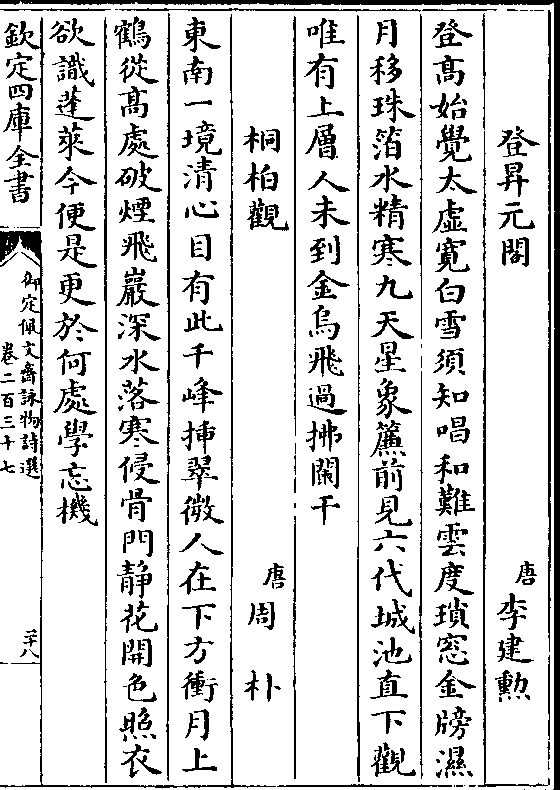 登昇元閣　唐李建勲
登髙始覺太虚寛白雪須知唱和難雲度瑣窓金牓濕
月移珠箔水精寒九天星象簾前見六代城池直下觀
唯有上層人未到金烏飛過拂闌干
桐柏觀　唐周朴
東南一境清心目有此千峰挿翠微人在下方衝月上
鶴從髙處破煙飛巖深水落寒侵骨門静花開色照衣
欲識蓬萊今便是更於何處學忘機
欽定四庫全書
御定佩文齋詠物詩選
卷二百三十七
二十八